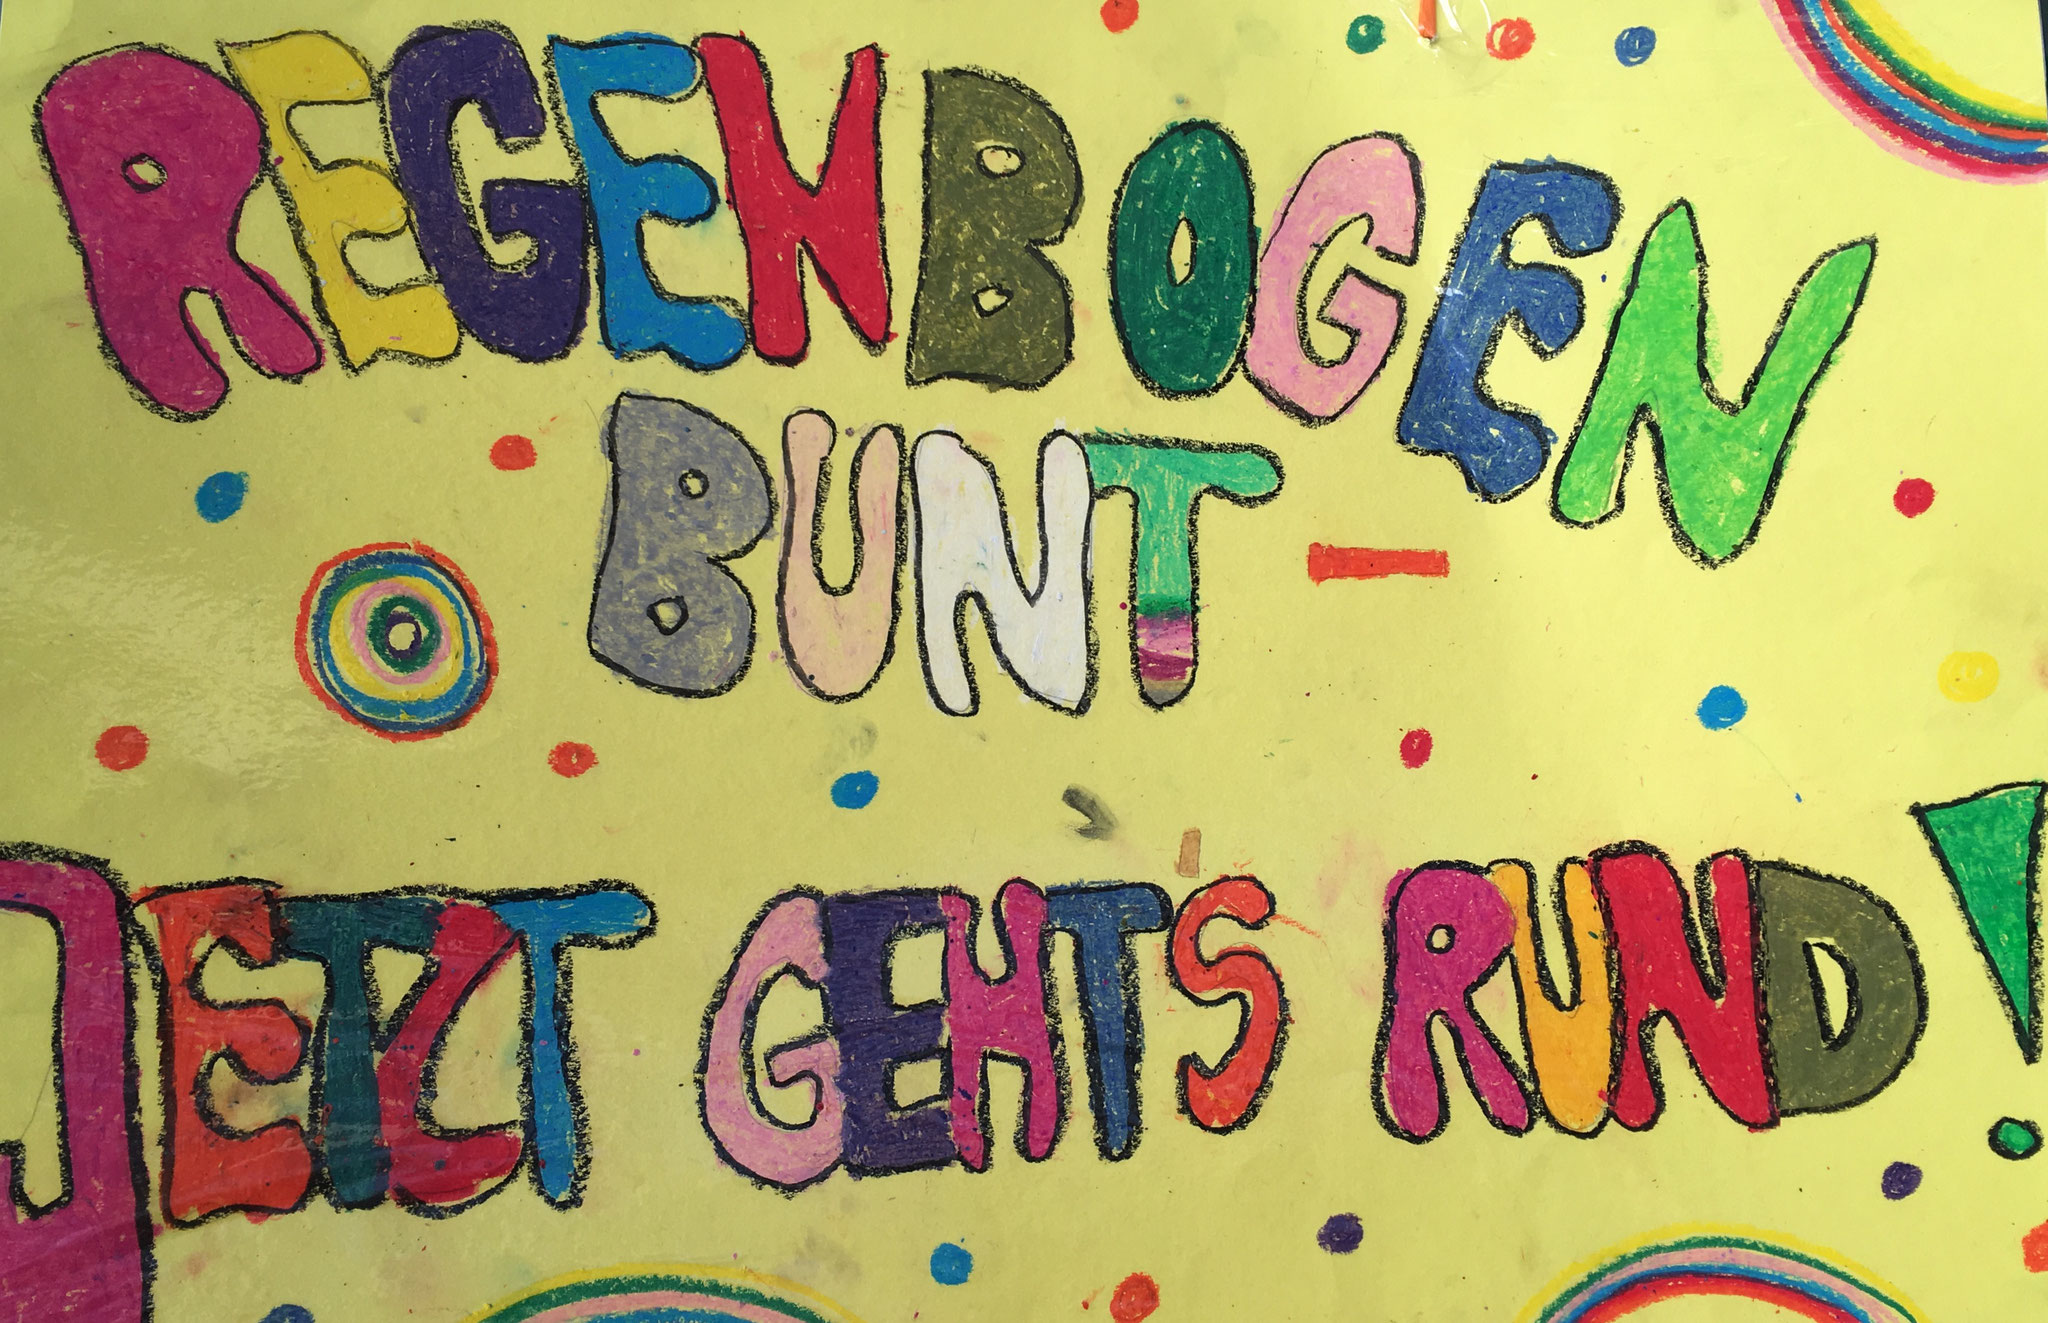 REGENBOGEN
BUNT -
JETZT GEHT'S RUND!